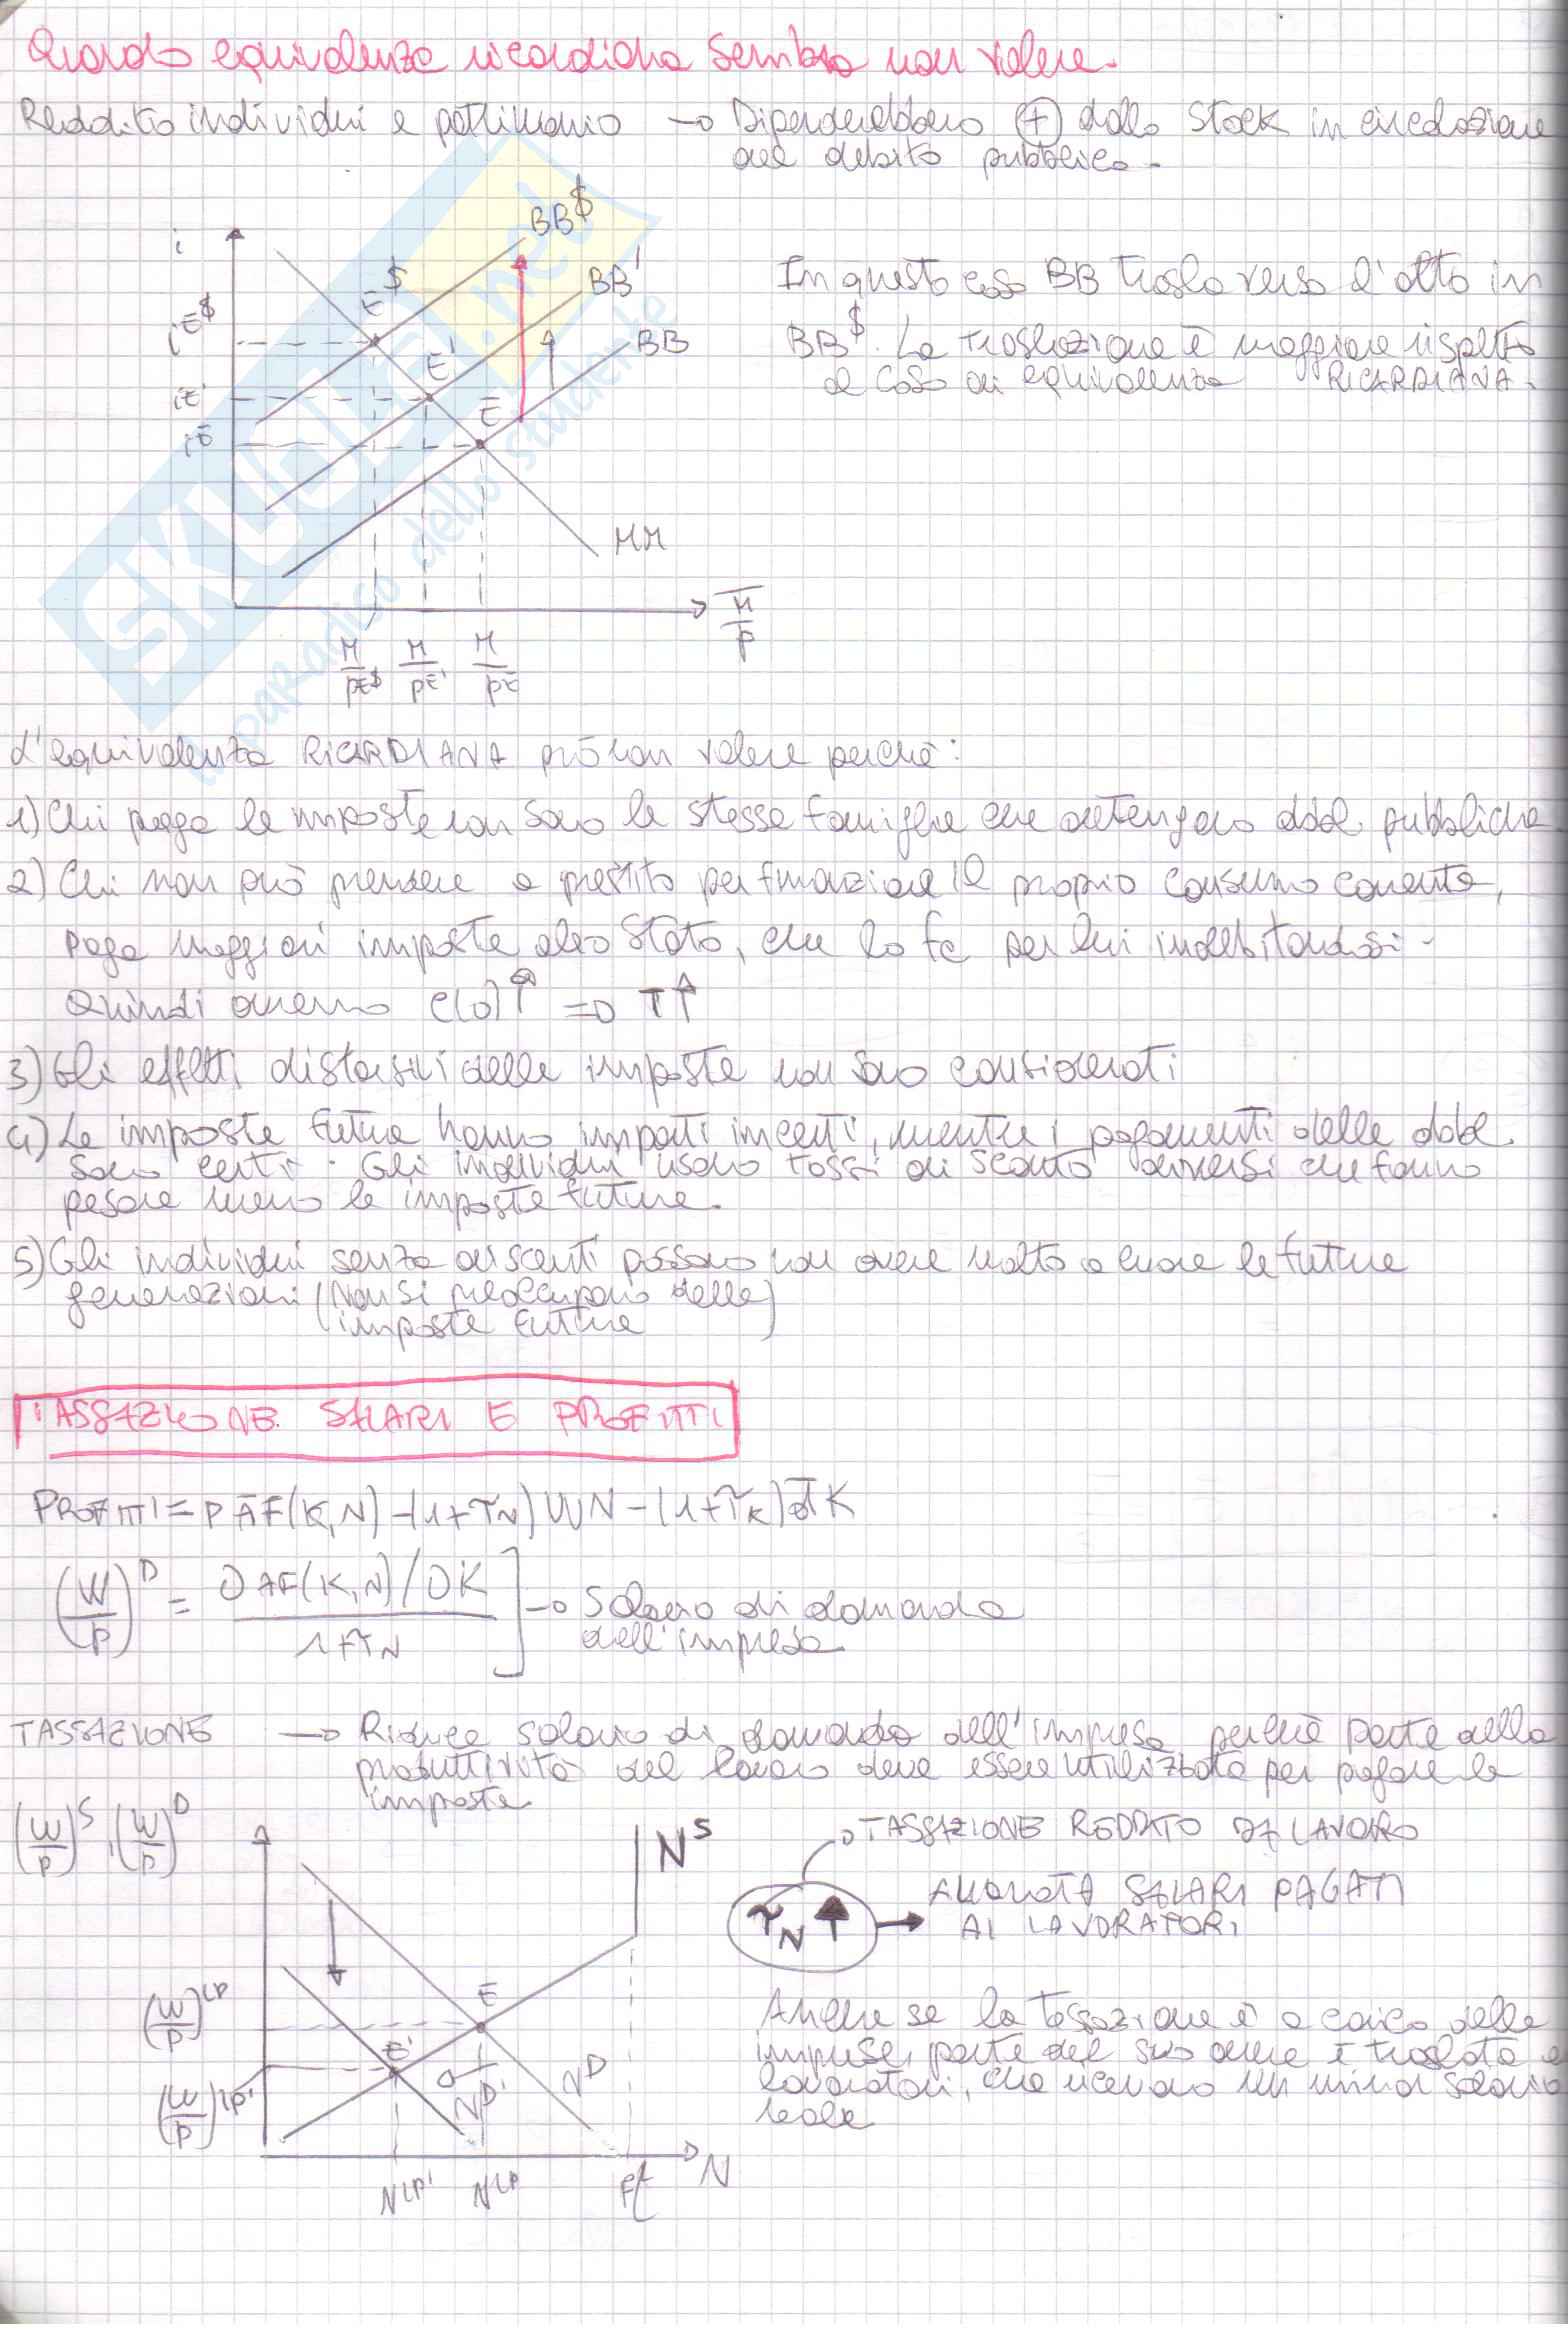 Quando equivalenza ricardiana sembra non valere.
Reddito individui e patrimonio → Dipenderebbero (+) dallo stock in circolazione
del debito pubblico.
i
BB$
BB'
BB
E$
E'
E
iE$
iE'
iE
MM
M/P
M/PE$ M/PE' M/PE
In questo caso BB trasla verso l'alto in
BB$. La traslazione è maggiore rispetto
al caso di equivalenza RICARDIANA.
L'equivalenza RICARDIANA può non valere perché:
1) Chi paga le imposte non sono le stesse famiglie che detengono obbl. pubbliche
2) Chi non può prendere a prestito per finanziare il proprio consumo corrente,
paga maggiori imposte allo Stato, che lo fa per lui indebitandosi.
Quindi avremo C(0)↑ => T↑
3) Gli effetti distorsivi delle imposte non sono considerati
4) Le imposte future hanno importi incerti, mentre i pagamenti delle obbl.
sono certi. Gli individui usano tassi di sconto diversi che fanno
pesare meno le imposte future.
5) Gli individui senza discenti possono non avere molto a cuore le future
generazioni (Non si preoccupano delle
imposte future)
TASSAZIONE SALARI E PROFITTI
PROFITTI = P ĀF(K,N) - (1+τN)WN - (1+τK)dK
(W/P)^D = ∂AF(K,N)/∂K
1+τN
→ Salario di domanda
dell'impresa
TASSAZIONE → Riduce salario di domanda dell'impresa perché parte della
produttività del lavoro deve essere utilizzata per pagare le
imposte
(W/P)^S, (W/P)^D
N^S
→ TASSAZIONE REDDITO DA LAVORO
τN ↑ → ALIQUOTA SALARI PAGATI
AI LAVORATORI
(W/P)^LP
(W/P)^LP'
E
E'
N^D'
N^D
N^LP' N^LP
N
Anche se la tassazione è a carico delle
imprese, parte del suo onere è traslata a
lavoratori, che ricevono un minor salario
reale
SKUOLA.net
il paradiso dello studente